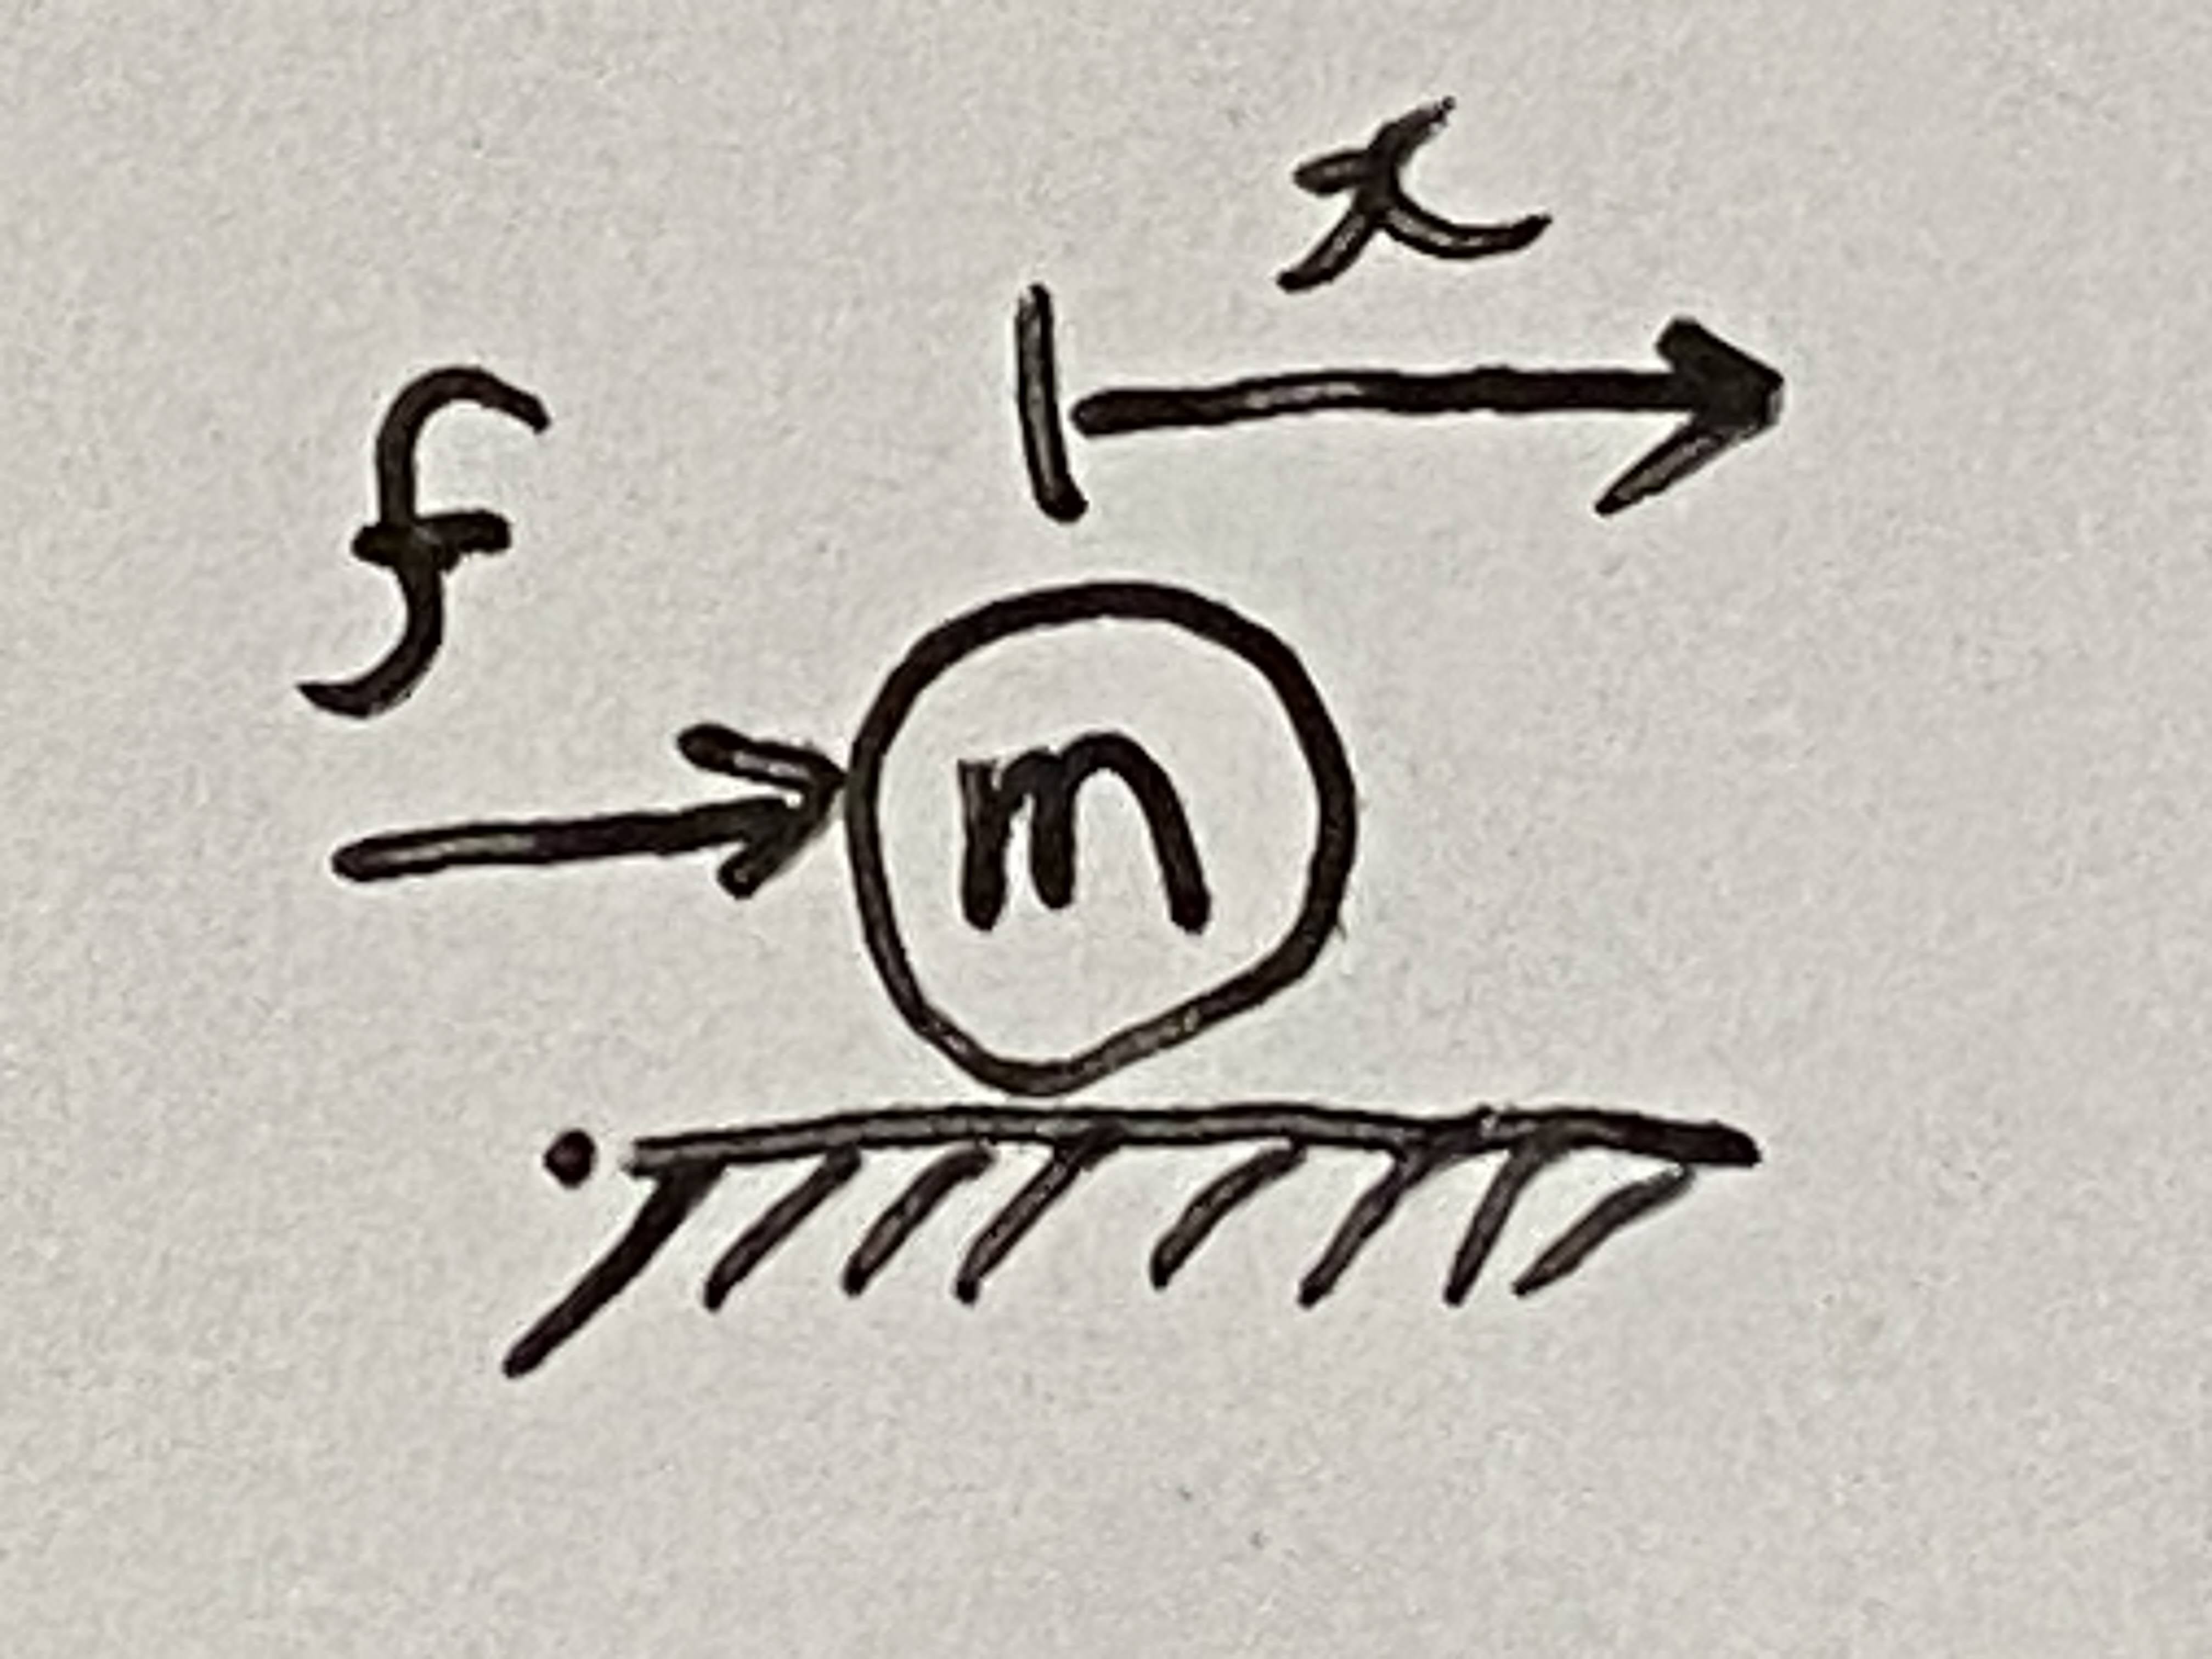 x
f
m